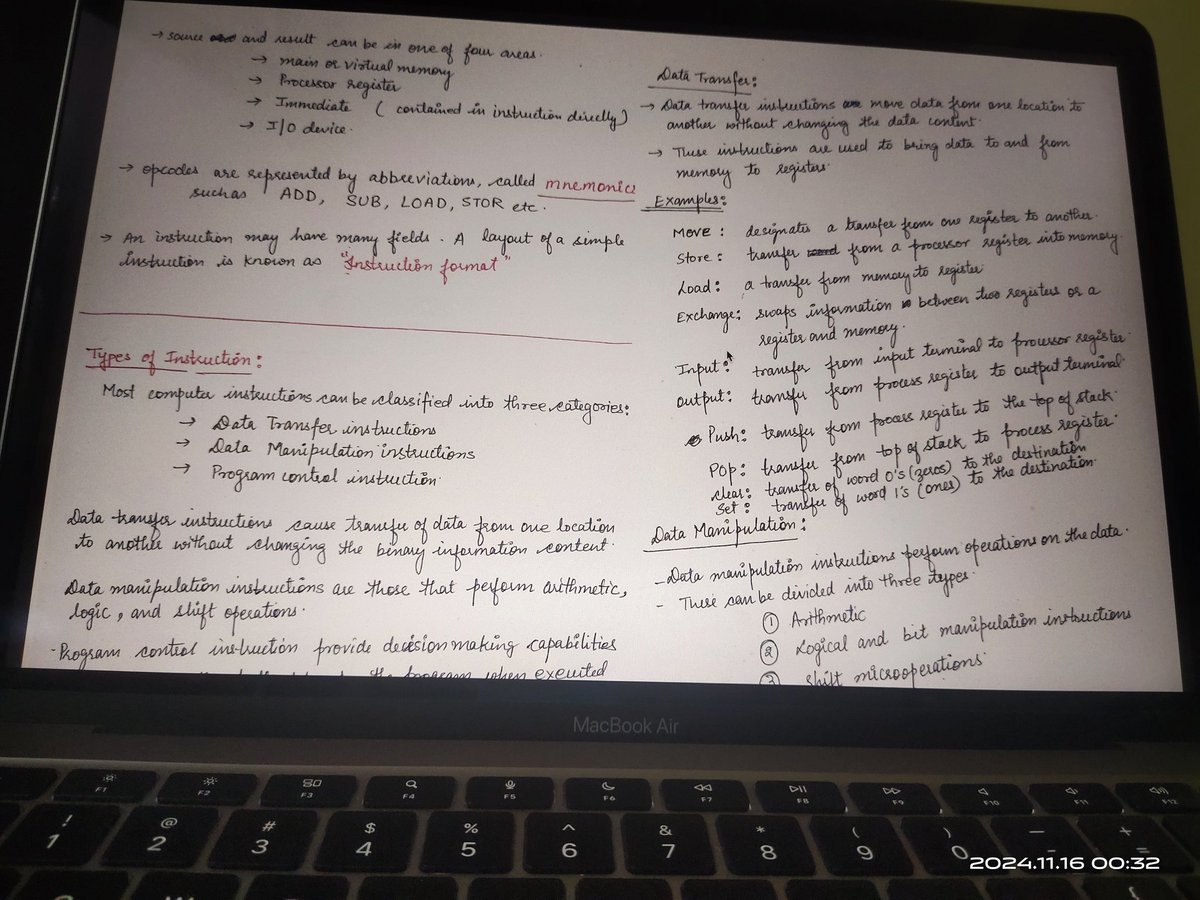 → source and result can be in one of four areas.
→ main or virtual memory
→ Processor register
→ Immediate ( contained in instruction directly)
→ I/O device.
→ opcodes are represented by abbreviations, called mnemonics
such as ADD, SUB, LOAD, STOR etc.
→ An instruction may have many fields. A layout of a simple
instruction is known as "Instruction format"
Types of Instruction:
Most computer instructions can be classified into three categories:
→ Data Transfer instructions
→ Data Manipulation instructions
→ Program control instruction.
Data transfer instructions cause transfer of data from one location
to another without changing the binary information content.
Data manipulation instructions are those that perform arithmetic,
logic, and shift operations.
- Program control instruction provide decision making capabilities
the program when executed
Data Transfer:
→ Data transfer instructions move data from one location to
another without changing the data content.
→ These instructions are used to bring data to and from
memory to registers.
Examples:
MOVE : designates a transfer from one register to another.
Store : transfer from a processor register into memory.
Load : a transfer from memory to register
Exchange: swaps information between two registers or a
register and memory.
Input : transfer from input terminal to processor register
Output : transfer from process register to output terminal
Push: transfer from process register to the top of stack.
POP: transfer from top of stack to process register.
clear: transfer of word 0's (zeros) to the destination
Set : transfer of word 1's (ones) to the destination.
Data Manipulation:
- Data manipulation instructions perform operations on the data.
- These can be divided into three types.
① Arithmetic
② Logical and bit manipulation instructions
③ Shift microoperations
MacBook Air
F1 F2 F3 F4 F5 F6 F7 F8 F9 F10 F11 F12
! @ # $ % ^ & * ( ) — +
1 2 3 4 5 6 7 8 9 0 - =
2024.11.16 00:32